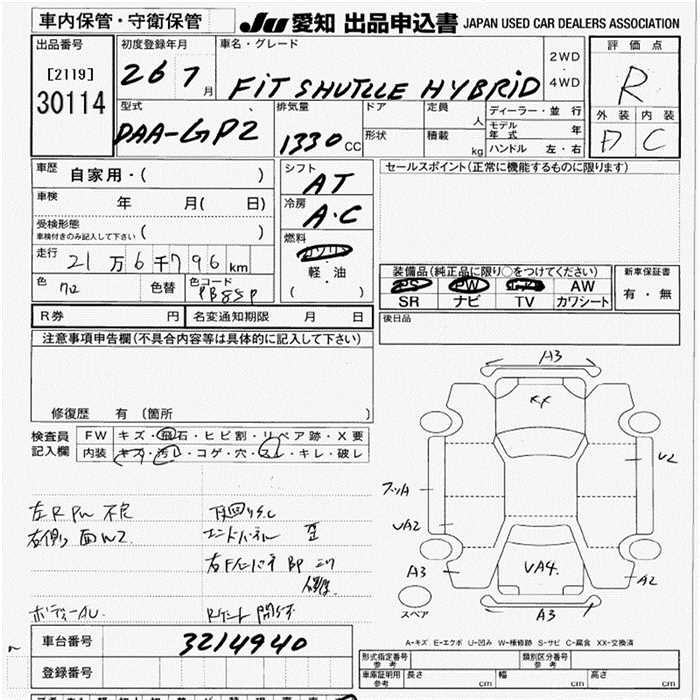 車内保管・守衛保管 JU 愛知 出品申込書 JAPAN USED CAR DEALERS ASSOCIATION
出品番号 初度登録年月 車名・グレード 2WD・4WD 評価点
[2119]
30114 26 7月 FiT SHUTLLE HYBRiD R
型式 排気量 ドア 定員 人 ディーラー・並行 外装 内装
DAA-GP2 1330 CC 形状 積載 kg モデル年式 年 C
ハンドル 左・右
車歴 自家用・( ) シフト AT セールスポイント(正常に機能するものに限ります)
車検 年 月( 日) 冷房 A・C
受検形態 車検付きのみ記入して下さい ( )
燃料 ガソリン
軽・油
( )
走行 21万6千796km
色 クロ 色替 色コード PB85P
装備品(純正品に限り○をつけてください) 新車保証書
PS PW エアB AW 有・無
SR ナビ TV カワシート
R券 円 名変通知期限 月 日 後日品
注意事項申告欄(不具合内容等は具体的に記入して下さい)
修復歴 有 (箇所 )
検査員記入欄 FW キズ・飛石・ヒビ割・リペア跡・X要
内装 キズ・汚レ・コゲ・穴・スレ・キレ・破レ
左R PW 不良
右側面W2
エンドパネル
ボディーAU
A3
XX
U2
UA2
A3
UA4
A2
A3
スペア
A-キズ E-エクボ U-凹み W-補修跡 S-サビ C-腐食 XX-交換済
車台番号 3214940
登録番号
形式指定番号 参考 類別区分番号 参考
車庫証明用 参考 長さ cm 幅 cm 高さ cm